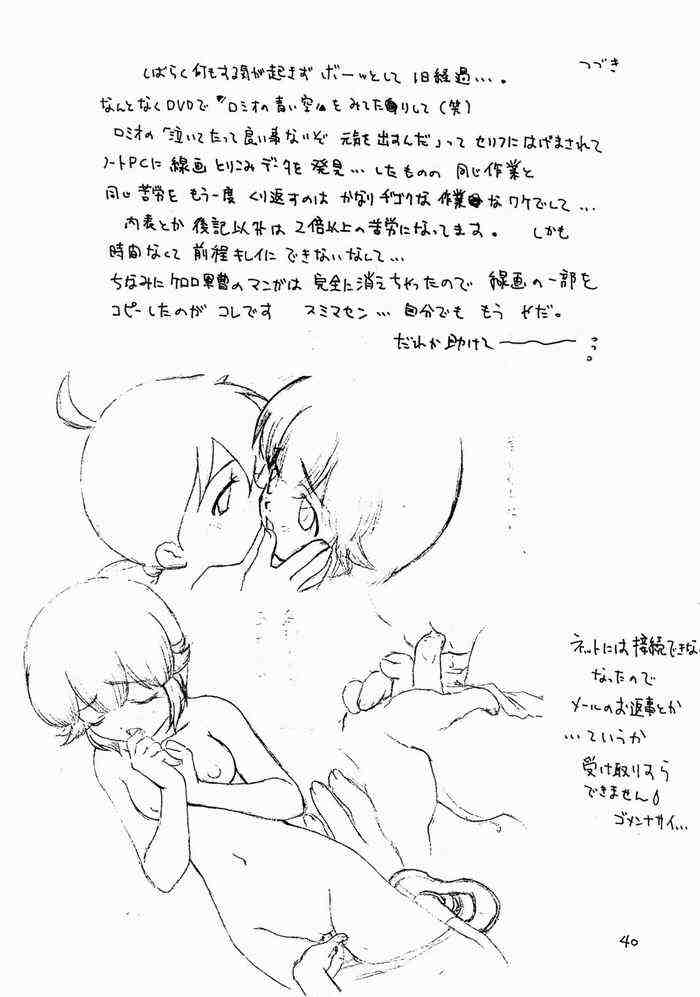 つづき
しばらく何もする気が起きず ボーッとして 1日経過…。
なんとなくDVDで『ロミオの青い空』をみてたりして(笑)
ロミオの「泣いてたって良い事ないぞ 元気を出すんだ」って セリフにはげまされて
ノートPCに 線画とりこみデータを 発見… したものの 同じ作業と
同じ苦労を もう一度 くり返すのは かなりヂゴクな 作業なワケでして…
内表とか 後記以外は 2倍以上の苦労になってます。 しかも
時間なくて 前程キレイに できないなんて…
ちなみにケロロ軍曹のマンガは 完全に消えちゃったので 線画の一部を
コピーしたのが コレです スミマセン… 自分でも もう やだ。
だれか助けて
ネットには 接続できな
なったので
メールのお返事とか
…ていうか
受け取りすら
できません
ゴメンナサイ…
40